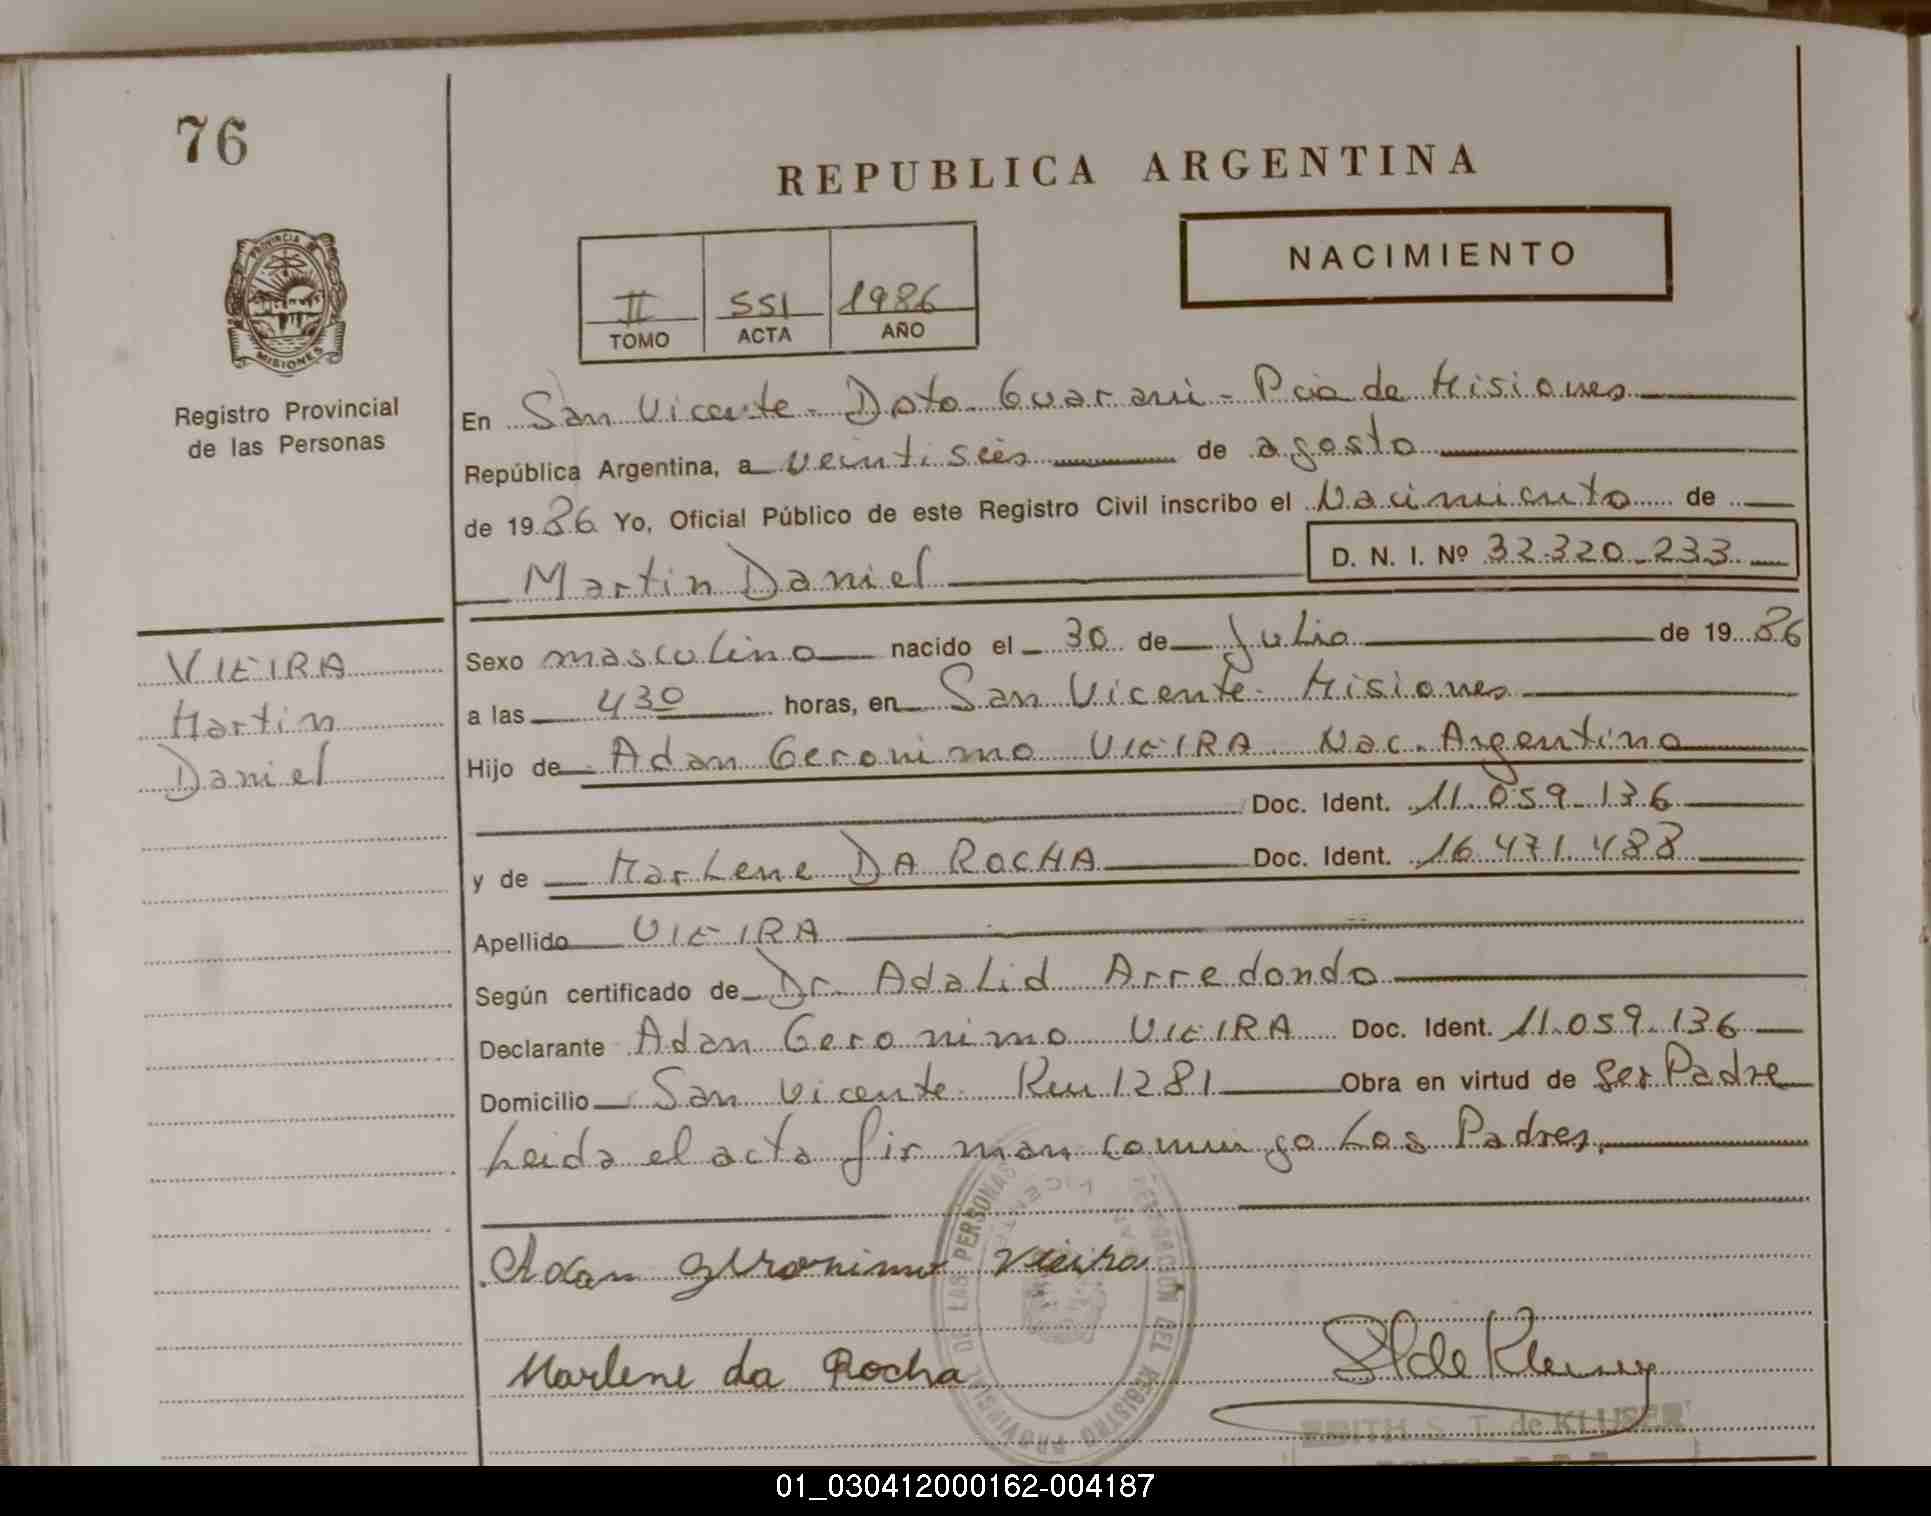 76
REPUBLICA ARGENTINA
PROVINCIA DE
MISIONES
Registro Provincial
de las Personas
NACIMIENTO
II 551 1986
TOMO ACTA AÑO
En San Vicente - Dpto Guarani - Pcia de Misiones
República Argentina, a veintiseis de agosto
de 1986 Yo, Oficial Público de este Registro Civil inscribo el Nacimiento de
Martin Daniel D. N. I. Nº 32.320.233
VIEIRA
Martin
Daniel
Sexo masculino nacido el 30 de Julio de 1986
a las 430 horas, en San Vicente - Misiones
Hijo de Adan Geronimo VIEIRA Nac. Argentino
Doc. Ident. 11.059.136
y de Marlene DA ROCHA Doc. Ident. 16.471.488
Apellido VIEIRA
Según certificado de Dr. Adalid Arredondo
Declarante Adan Geronimo VIEIRA Doc. Ident. 11.059.136
Domicilio San Vicente Km 1281 Obra en virtud de Ser Padre
Leida el acta firman comigo Los Padres.
Adan Geronimo Vieira
Marlene da Rocha
DEL REGISTRO PROVINCIAL DE LAS PERSONAS
EDITH S. T. de KLUSER
01_030412000162-004187